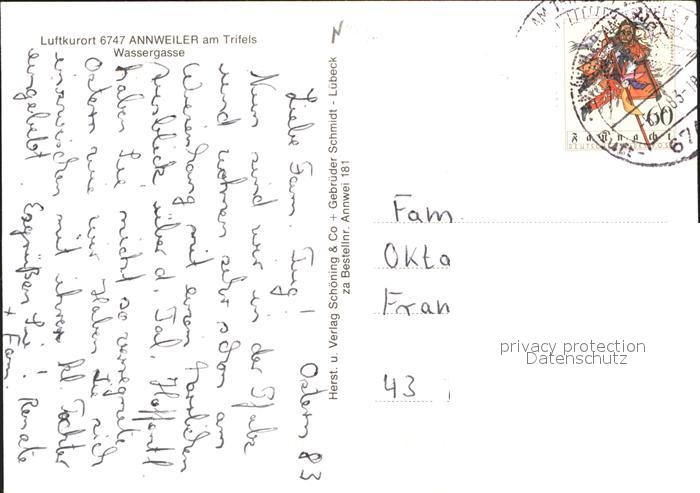 Luftkurort 6747 ANNWEILER am Trifels
Wassergasse
Ostern 83
Liebe Fam. Jung!
Nun sind wir in der Pfalz
und wohnen sehr schön am
Wiesenhang mit einem herrlichen
Ausblick über d. Tal. Hoffentl.
haben Sie nicht so verregnete
Ostern wie wir. Haben Sie sich
inzwischen mit ihrer kl. Tochter
eingelebt. Es grüßen Sie! Renate
+ Fam.
Herst. u. Verlag Schöning & Co + Gebrüder Schmidt - Lübeck
za Bestellnr. Annwei 181
60
Fastnacht
DEUTSCHE BUNDESPOST
Fam.
Okta
Fran
43
privacy protection
Datenschutz